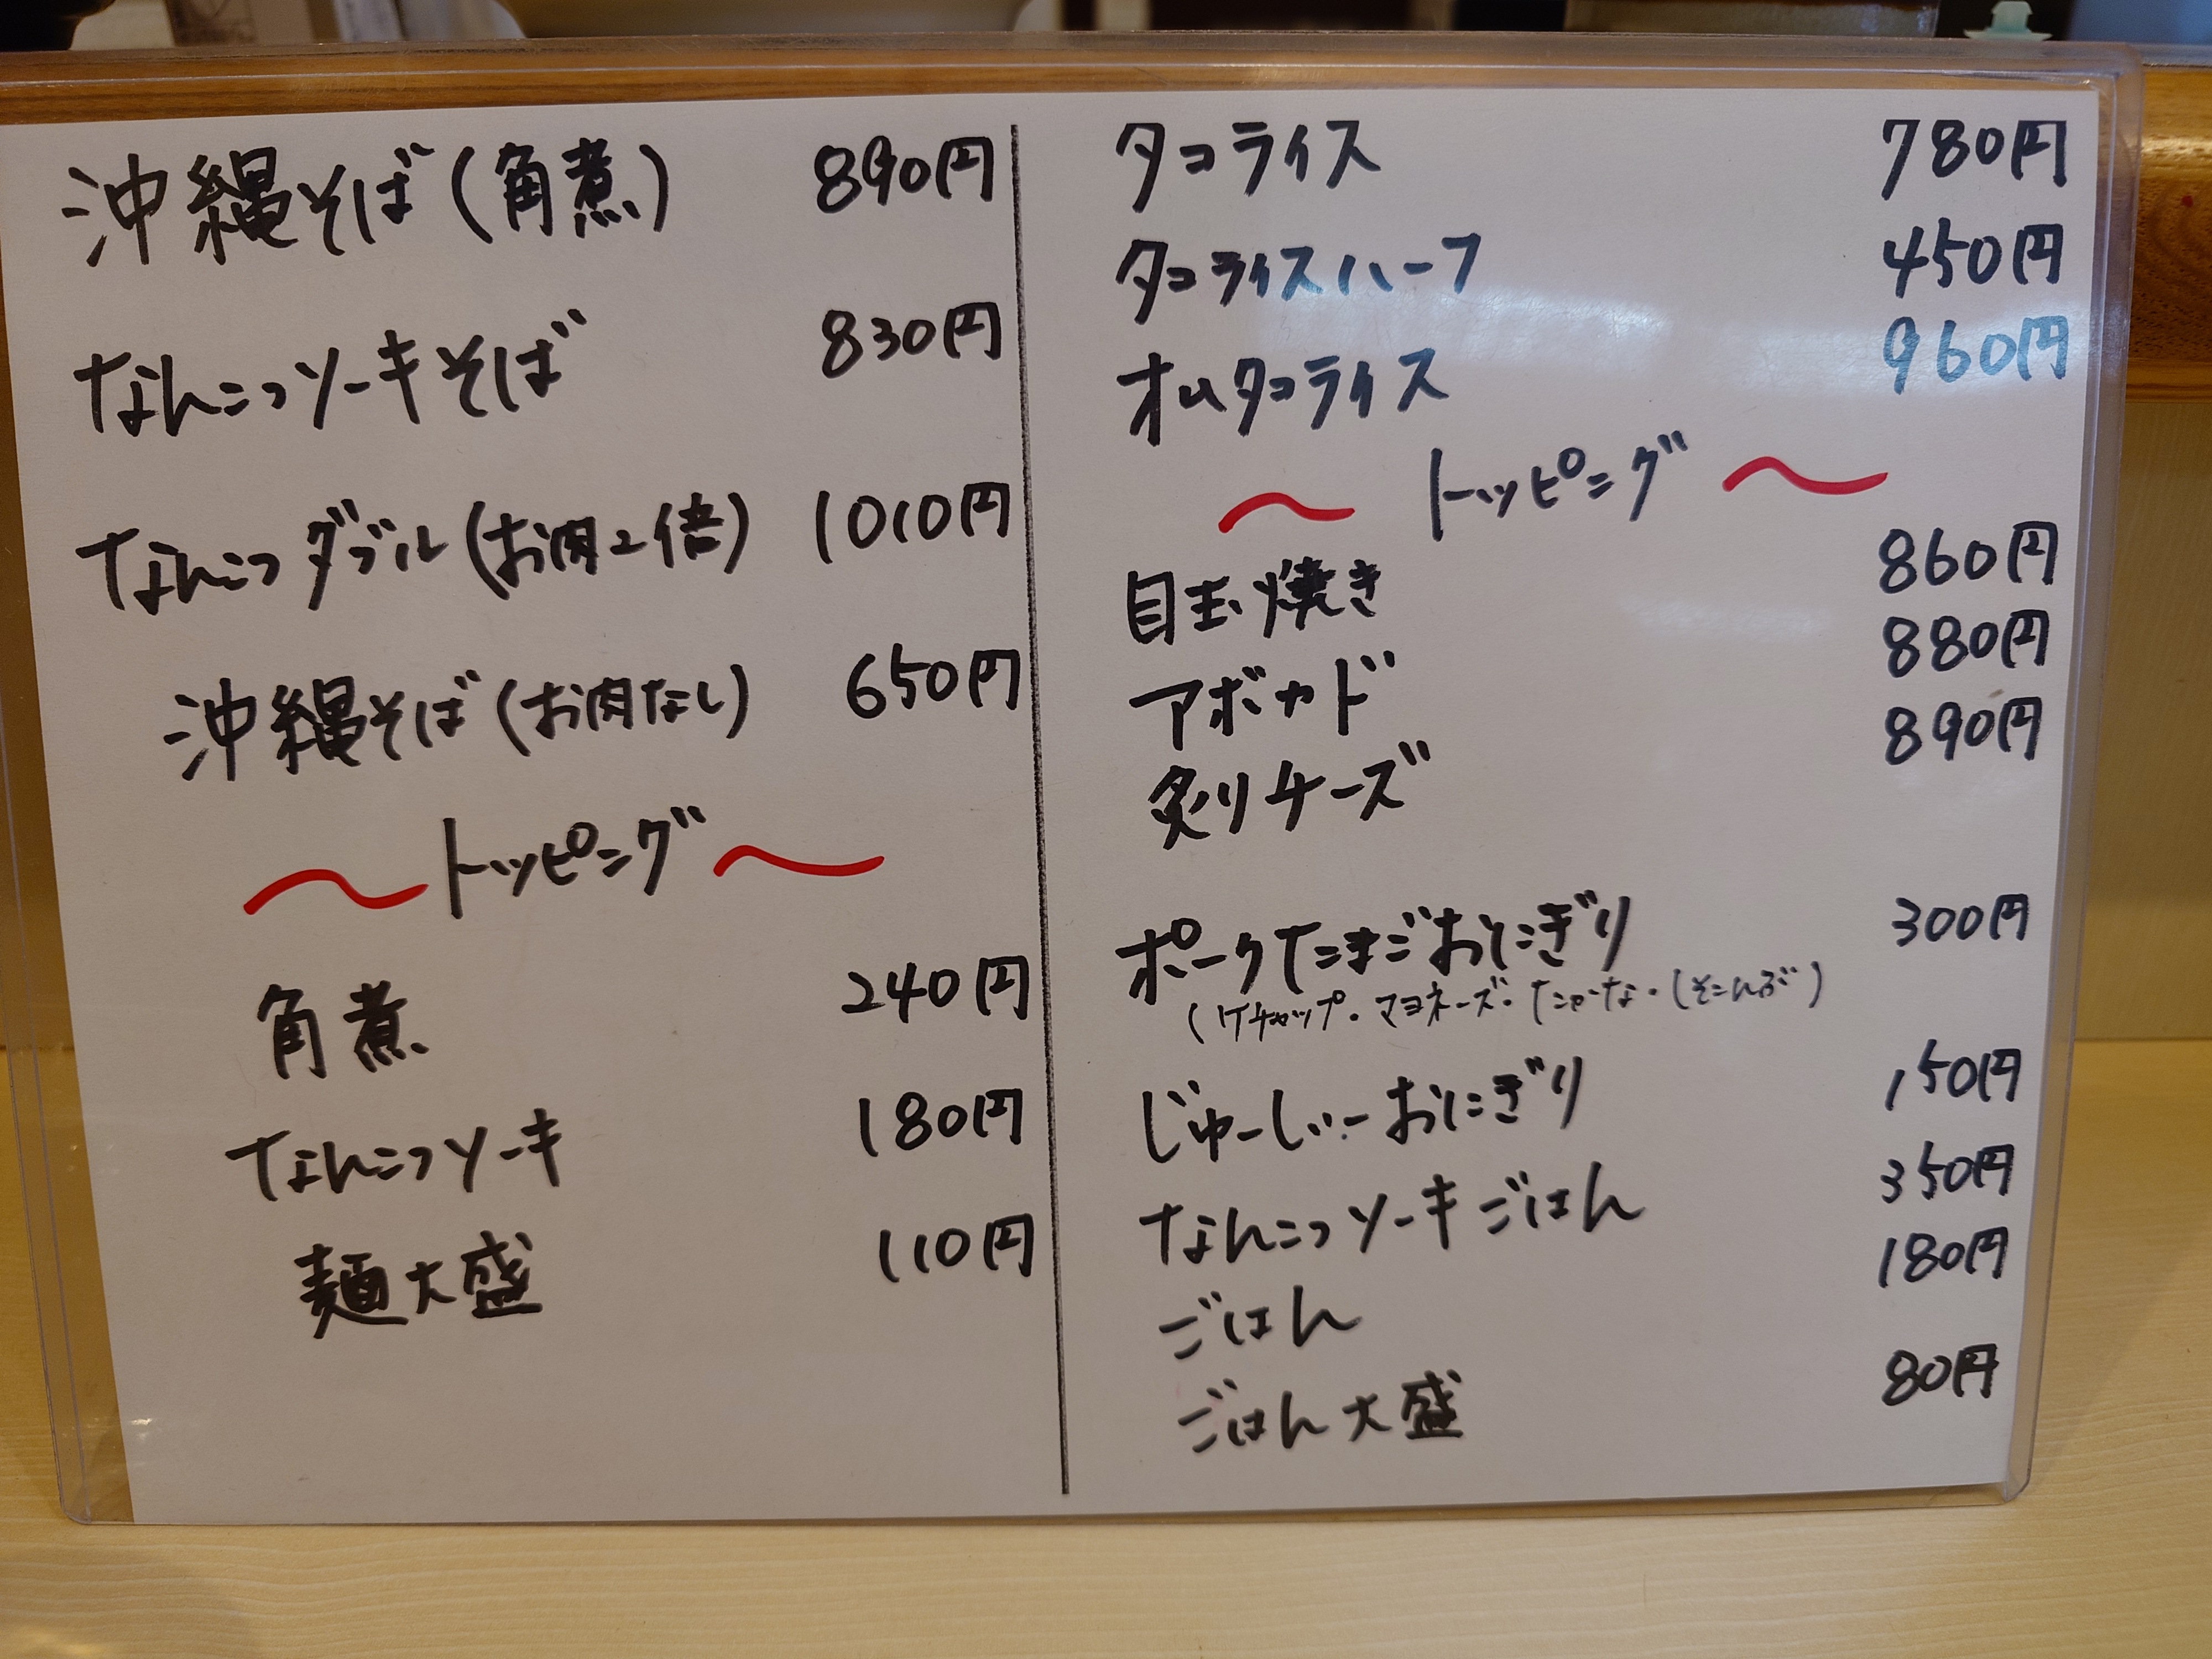 沖縄そば(角煮) 890円
なんこつソーキそば 830円
なんこつダブル(お肉2倍) 1010円
沖縄そば(お肉なし) 650円
〜トッピング〜
角煮 240円
なんこつソーキ 180円
麺大盛 110円
タコライス 780円
タコライスハーフ 450円
オムタコライス 960円
〜トッピング〜
目玉焼き 860円
アボカド 880円
炙りチーズ 890円
ポークたまごおにぎり 300円
(ケチャップ・マヨネーズ・たかな・しそこんぶ)
じゅーしぃーおにぎり 150円
なんこつソーキごはん 350円
ごはん 180円
ごはん大盛 80円